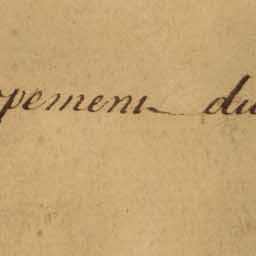 pement du